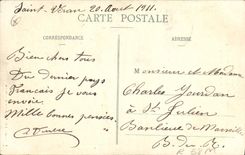 Saint-Véran 20 Aout 1911.
CARTE POSTALE
CORRESPONDANCE
ADRESSE
Bien chers tous
Du dernier pays
Français je vous
envoie
Mille bonnes pensées
Monsieur et Madame
Charles Jourdan
à St Julien
Banlieue de Marseille
B. du R.